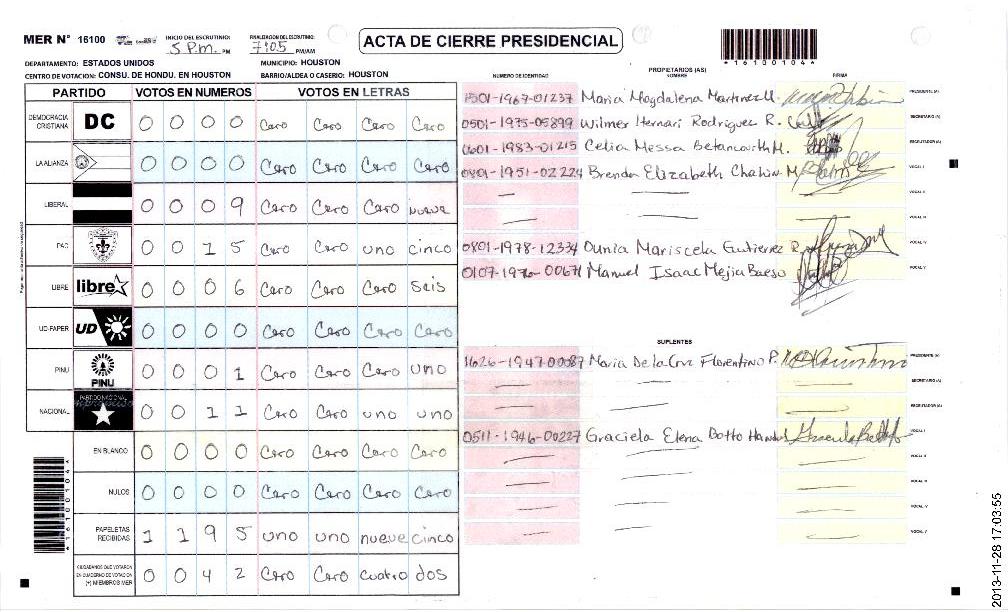 MER Nº 16100 INICIO DEL ESCRUTINIO: 5 P.m. PM FINALIZACION DEL ESCRUTINIO: 7:05 PM/AM
ACTA DE CIERRE PRESIDENCIAL
*16100104*
DEPARTAMENTO: ESTADOS UNIDOS MUNICIPIO: HOUSTON
CENTRO DE VOTACION: CONSU. DE HONDU. EN HOUSTON BARRIO/ALDEA O CASERIO: HOUSTON
PARTIDO VOTOS EN NUMEROS VOTOS EN LETRAS
DEMOCRACIA CRISTIANA DC 0 0 0 0 Cero Cero Cero Cero
LA ALIANZA 0 0 0 0 Cero Cero Cero Cero
LIBERAL 0 0 0 9 Cero Cero Cero nueve
PAC 0 0 1 5 Cero Cero uno cinco
LIBRE libre 0 0 0 6 Cero Cero Cero seis
UD-FAPER UD 0 0 0 0 Cero Cero Cero Cero
PINU PINU 0 0 0 1 Cero Cero Cero uno
NACIONAL PARTIDO NACIONAL 0 0 1 1 Cero Cero uno uno
EN BLANCO 0 0 0 0 Cero Cero Cero Cero
NULOS 0 0 0 0 Cero Cero Cero Cero
PAPELETAS RECIBIDAS 1 1 9 5 uno uno nueve cinco
CIUDADANOS QUE VOTARON EN CUADERNO DE VOTACION (+) MIEMBROS MER 0 0 4 2 Cero Cero cuatro dos
*16100104*
PROPIETARIOS (AS)
NUMERO DE IDENTIDAD NOMBRE FIRMA
1501-1967-01237 Maria Magdalena Martinez U. PRESIDENTE (A)
0501-1975-05899 Wilmer Hernari Rodriguez R. SECRETARIO (A)
1601-1983-01215 Celia Messa Betancourth M. ESCRUTADOR (A)
0801-1951-02224 Brenda Elizabeth Chahin M. VOCAL I
VOCAL II
VOCAL III
0801-1978-12334 Dunia Mariscela Gutierrez R. VOCAL IV
0107-1970-00671 Manuel Isaac Mejia Bueso VOCAL V
SUPLENTES
1626-1947-00087 Maria De la Cruz Florentino P. PRESIDENTE (A)
SECRETARIO (A)
ESCRUTADOR (A)
0511-1946-00227 Graciela Elena Botto VOCAL I
VOCAL II
VOCAL III
VOCAL IV
VOCAL V
2013-11-28 17:03:55